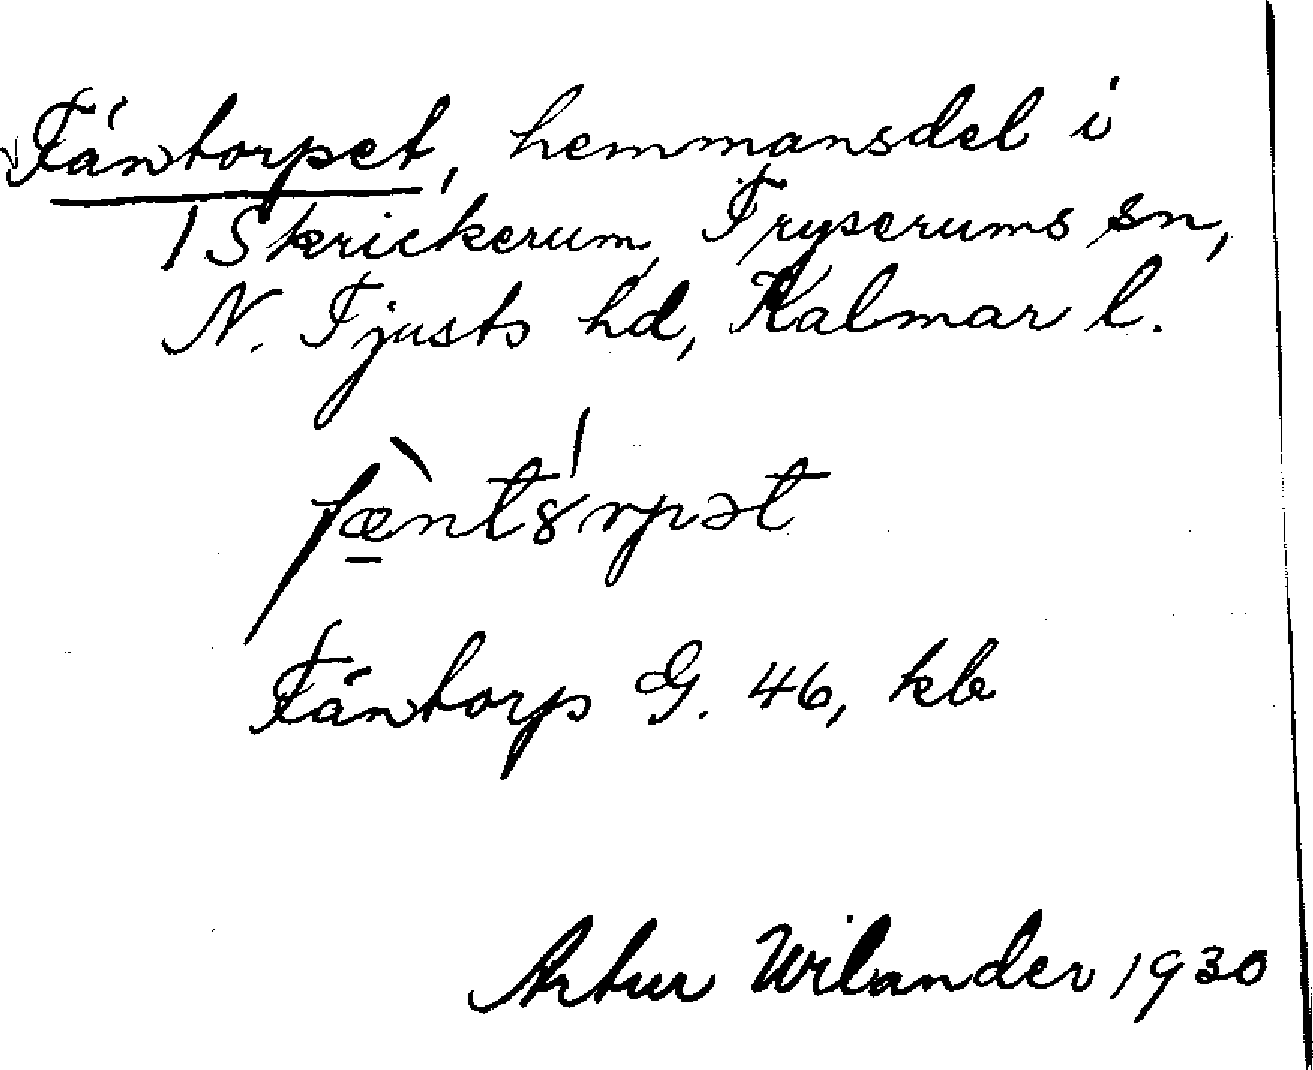 Fäntorpet, hemmansdel i
1 Skrickerum, Fryserums sn,
N. Tjusts hd, Kalmar l.
fæ̠̀nt8́rpət
Fäntorp G. 46, kb
Artur Wilander 1930